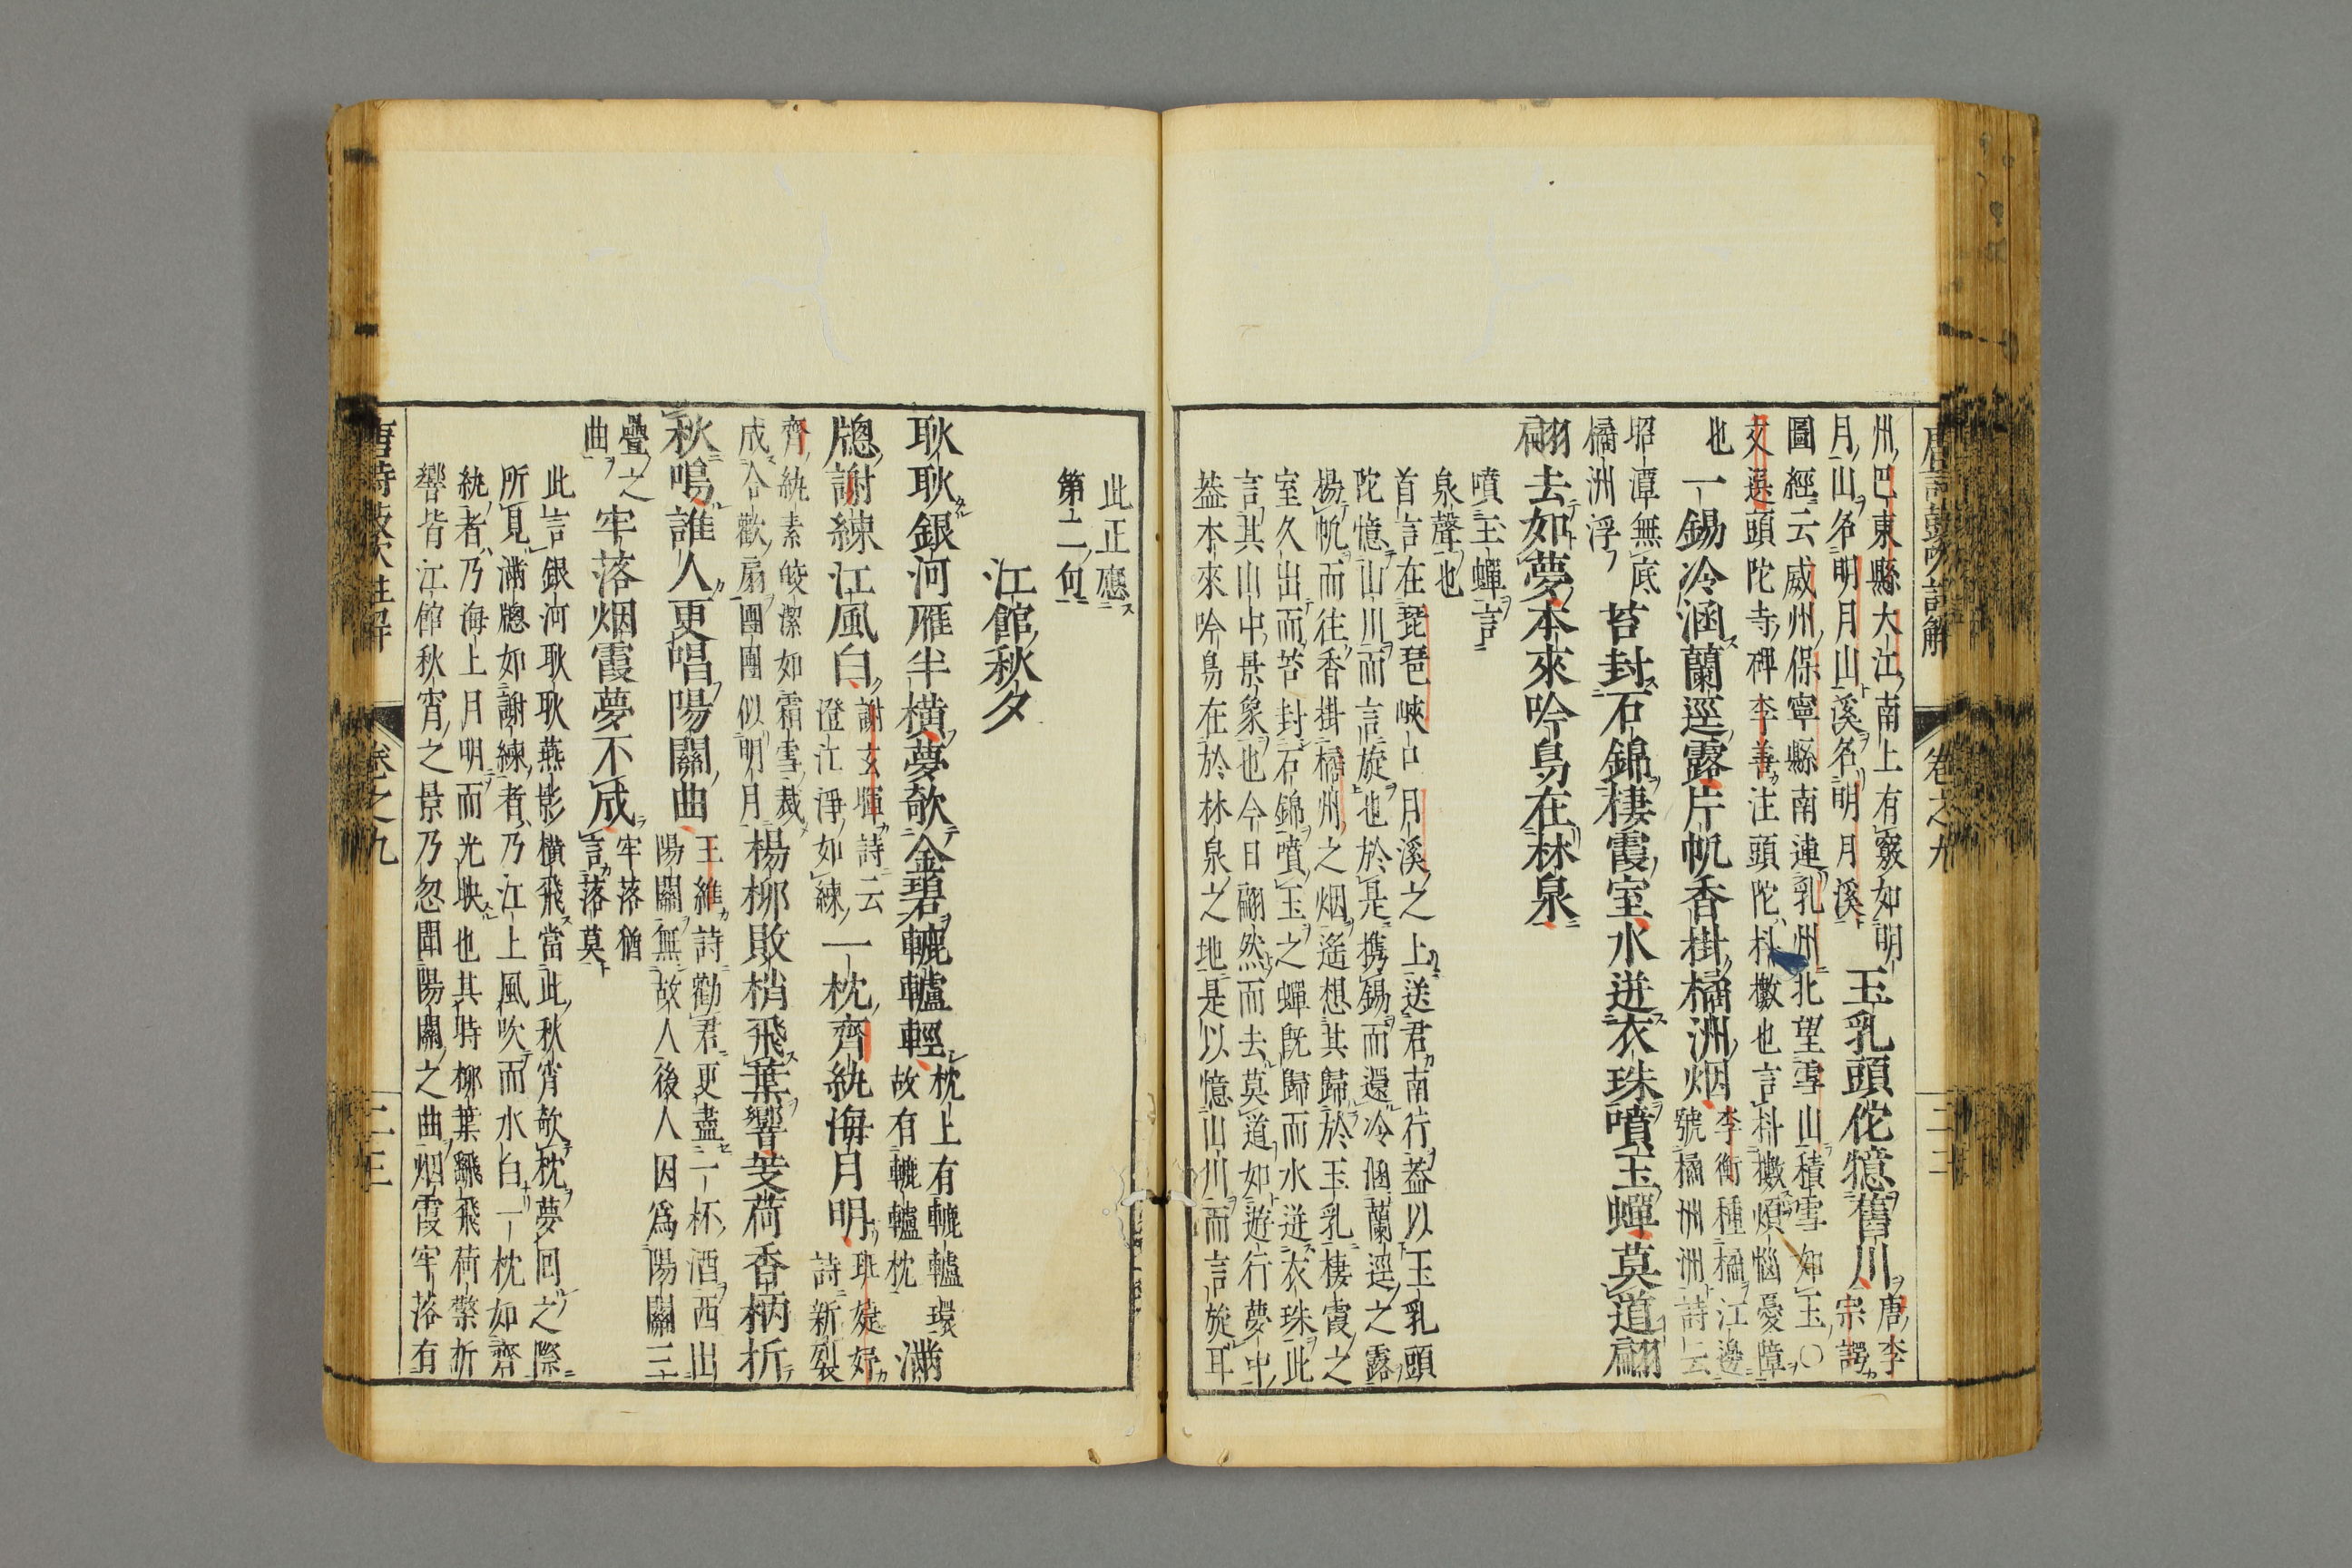 州巴東縣大江南上有竅如明
月山名明月山溪名明月溪
玉乳頭佗憶舊川
唐李
宗諤
圖經云威州保寧縣南連乳州北望雪山積雪如玉○
文選頭陀寺碑李善注頭陀抖擻也言抖擻煩惱憂障
也
一錫冷涵蘭逕露片帆香掛橘洲烟
李衡種橘江邊
號橘洲洲詩云
昭潭無底
橘洲浮
苔封石錦棲霞室水迸衣珠噴玉蟬莫道翩
翩去如夢本來吟鳥在林泉
噴玉蟬言
泉聲也
首言在琵琶峽口月溪之上送君南行蓋以玉乳頭
陀憶山川而言旋也於是携錫而還冷涵蘭逕之露
楊帆而往香掛橘州之烟遙想其歸於玉乳棲霞之
室久出而苔封石錦噴玉之蟬既歸而水迸衣珠此
言其山中景象也今日翩然而去莫道如遊行夢中
蓋本來吟鳥在於林泉之地是以憶山川而言旋耳
唐詩鼓吹註解 卷之九
此正應
第二句
江館秋夕
耿耿銀河雁半橫夢欹金碧轆轤輕
枕上有轆轤環
故有轆轤枕
滿
牕謝練江風白
謝玄暉詩云
澄江淨如練
一枕齊紈海月明
班婕妤
詩新裂
齊紈素皎潔如霜雪裁
成合歡扇團團似明月
楊柳敗梢飛葉響芰荷香柄折
秋鳴誰人更唱陽關曲
王維詩勸君更盡一杯酒西出
陽關無故人後人因爲陽關三
疊之
曲
牢落烟霞夢不成
牢落猶
言落莫
此言銀河耿耿燕影橫飛當此秋宵欹枕夢回之際
所見滿牕如謝練者乃江上風吹而水白一枕如齊
紈者乃海上月明而光映也其時柳葉飄飛荷槃折
響皆江館秋宵之景乃忽聞陽關之曲烟霞牢落有
唐詩鼓吹註解 卷之九 二三